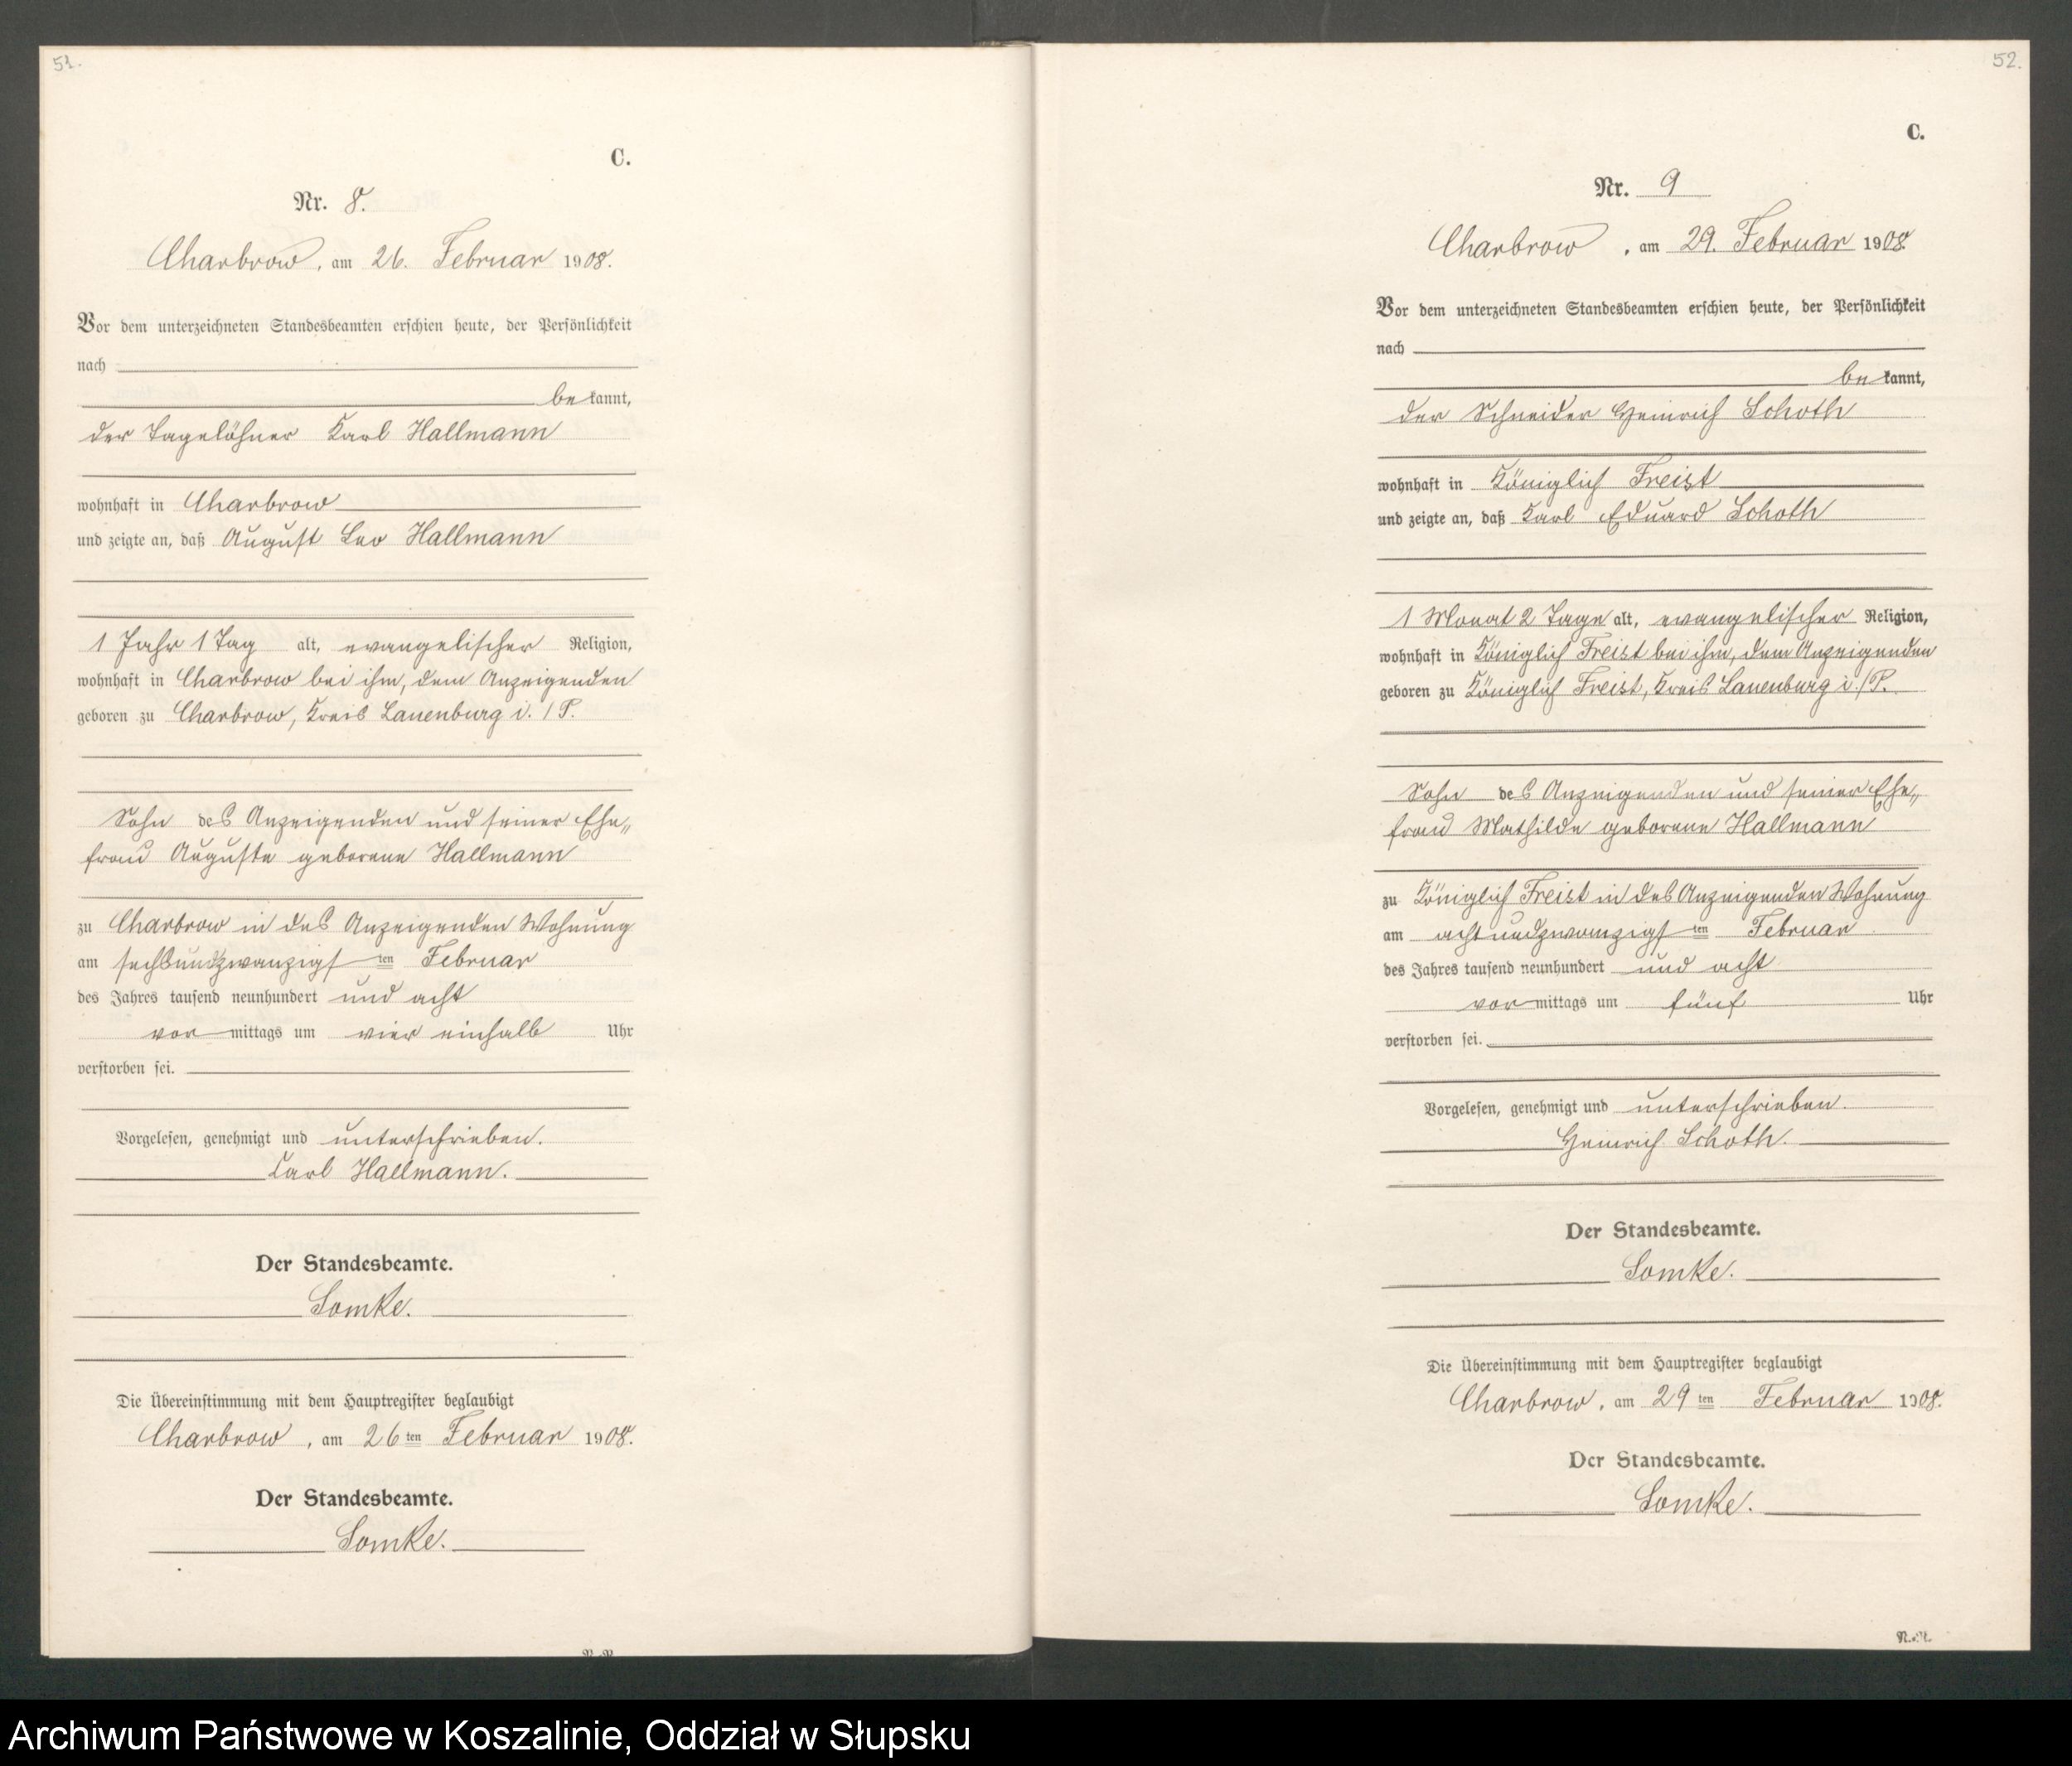 51.
C.
Nr. 8.
Charbrow, am 26. Februar 1908.
Vor dem unterzeichneten Standesbeamten erschien heute, der Persönlichkeit
nach
be kannt,
der Tagelöhner Karl Hallmann
wohnhaft in Charbrow
und zeigte an, daß August Leo Hallmann
1 Jahr 1 Tag alt, evangelischer Religion,
wohnhaft in Charbrow bei ihm, dem Anzeigenden
geboren zu Charbrow, Kreis Lauenburg i./P.
Sohn des Anzeigenden und seiner Ehe„
frau Auguste geborene Hallmann
zu Charbrow in des Anzeigenden Wohnung
am sechsundzwanzigsten Februar
des Jahres tausend neunhundert und acht
vor mittags um vier einhalb Uhr
verstorben sei.
Vorgelesen, genehmigt und unterschrieben.
Carl Hallmann.
Der Standesbeamte.
Lomke.
Die Übereinstimmung mit dem Hauptregister beglaubigt
Charbrow, am 26ten Februar 1908.
Der Standesbeamte.
Lomke.
52.
C.
Nr. 9
Charbrow, am 29. Februar 1908.
Vor dem unterzeichneten Standesbeamten erschien heute, der Persönlichkeit
nach
be kannt,
der Schneider Heinrich Schoth
wohnhaft in Königlich Freist
und zeigte an, daß Karl Eduard Schoth
1 Monat 2 Tage alt, evangelischer Religion,
wohnhaft in Königlich Freist bei ihm, dem Anzeigenden
geboren zu Königlich Freist, Kreis Lauenburg i./P.
Sohn des Anzeigenden und seiner Ehe„
frau Mathilde geborene Hallmann
zu Königlich Freist in des Anzeigenden Wohnung
am achtundzwanzigsten Februar
des Jahres tausend neunhundert und acht
vor mittags um fünf Uhr
verstorben sei.
Vorgelesen, genehmigt und unterschrieben.
Heinrich Schoth.
Der Standesbeamte.
Lomke.
Die Übereinstimmung mit dem Hauptregister beglaubigt
Charbrow, am 29ten Februar 1908.
Der Standesbeamte.
Lomke.
Archiwum Państwowe w Koszalinie, Oddział w Słupsku